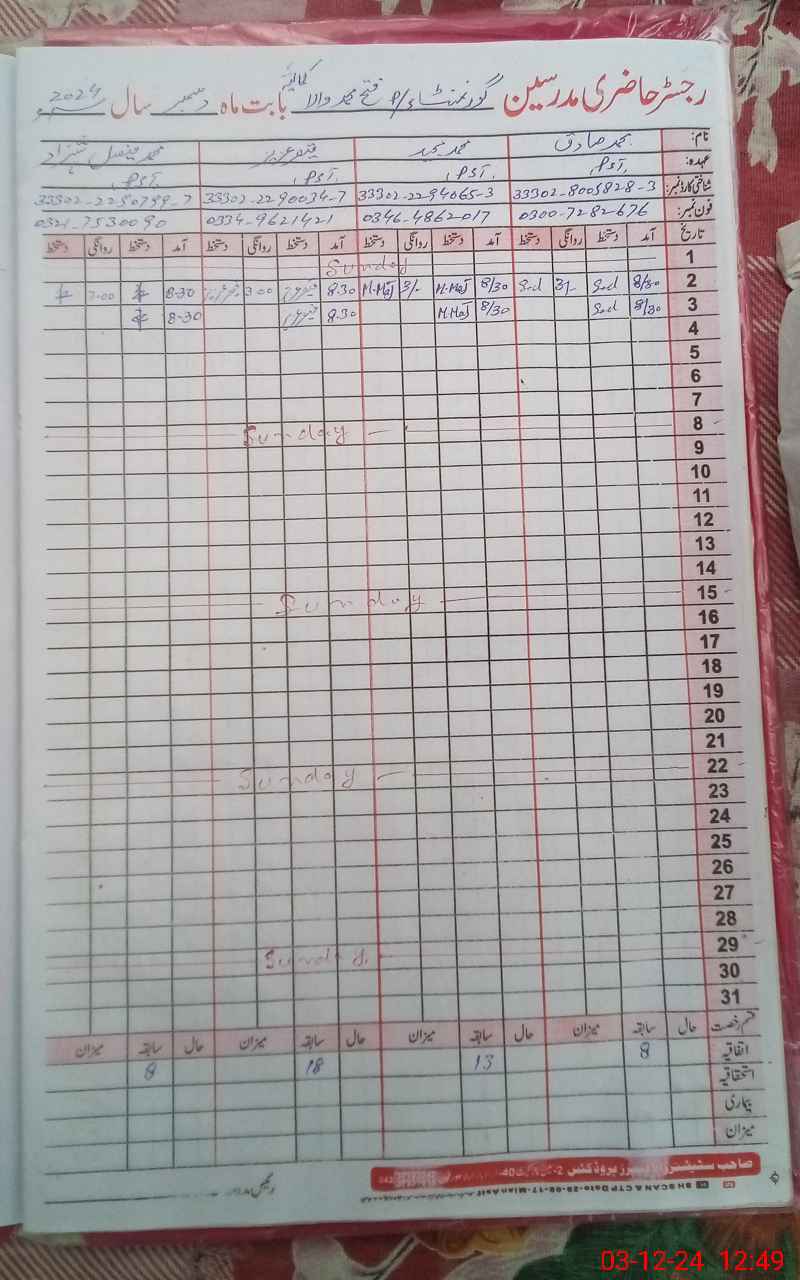 رجسٹر حاضری مدرسین گورنمنٹ P/S فتح محمد والا کمالیہ بابت ماہ دسمبر سال 2024
نام: محمد صادق محمد مجید محمد فیصل شہزاد
عہدہ: PST PST PST PST
شناختی کارڈ نمبر: 33302-8005828-3 33302-2294065-3 33302-2290034-7 33302-2290799-7
فون نمبر: 0300-7282676 0346-4862017 0334-9621421 0321-7530090
تاریخ آمد دستخط روانگی دستخط آمد دستخط روانگی دستخط آمد دستخط روانگی دستخط آمد دستخط روانگی دستخط
1 Sunday
2 8/30 Sad 3/- Sad 8/30 M.Maj 3/- M.Maj 8.30 3.00 8-30 3.00
3 8/30 Sad 8/30 M.Maj 8.30 8-30
4
5
6
7
8 Sunday
9
10
11
12
13
14
15 Sunday
16
17
18
19
20
21
22 Sunday
23
24
25
26
27
28
29 Sunday
30
31
قسم رخصت حال سابقہ میزان حال سابقہ میزان حال سابقہ میزان حال سابقہ میزان
اتفاقیہ 8 13 18 8
استحقاقیہ
بیماری
میزان
صاحب سٹیشنرز
رئیس مدرسہ
03-12-24 12:49